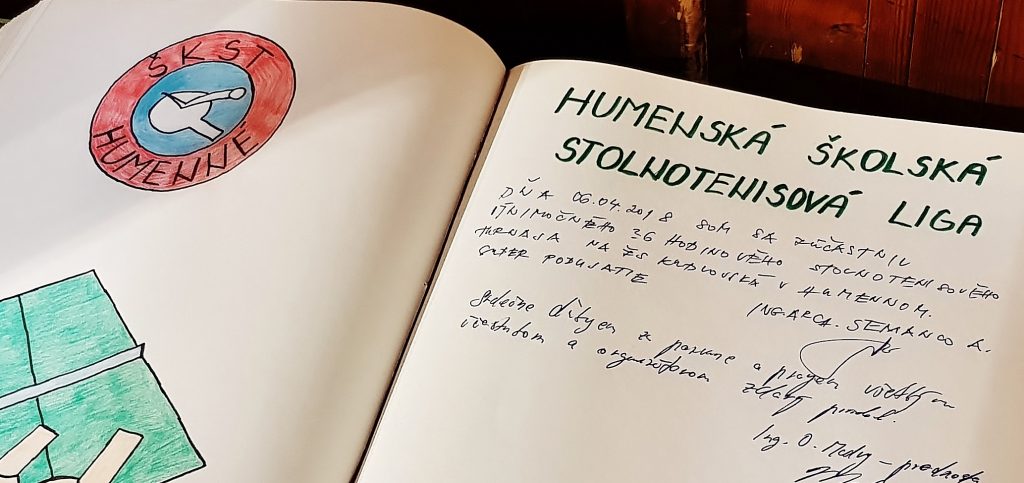 ŠKST
HUMENNE
HUMENSKÁ ŠKOLSKÁ
STOLNOTENISOVÁ LIGA
DŇA 06.04.2018 SOM SA ZÚČASTNIL
VÝNIMOČNÉHO 36 HODINOVÉHO STOLNOTENISOVÉHO
TURNAJA NA ZŠ KUDLOVSKÁ V HUMENNOM.
SUPER PODUJATIE
ING.ARCH. SEMANCO A.
Srdečne ďakujem za pozvanie a prajem všetkým
účastníkom a organizátorom zdarný priebeh.
Ing. O.